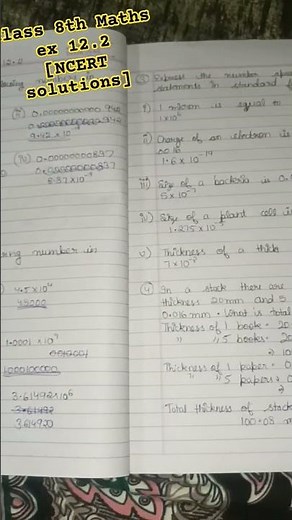 class 8th Maths
ex 12.2
[NCERT
solutions]
12.2
number in
(ii)
9.42 × 10
(iv) 0.00000000837
number in
4.5 × 10⁴
1.0001 × 10⁹
1000100000
3.61492 × 10⁶
3.61492
③ Express the number
statements in standard
i) 1 micron is equal to
1 × 10
ii) Charge of an electron is
0016
1.6 × 10⁻¹⁹
iii) Size of a bacteria is 0.
5 × 10⁻⁷
iv) Size of a plant cell
1.275 × 10⁻⁵
v) Thickness of a thick
7 × 10⁻²
④ In a stack there are
thickness 20mm and 5
0.016mm. What is total
Thickness of 1 book = 20
" " 5 books = 20
= 10
Thickness of 1 paper = 0
" " 5 papers = 0
Total thickness of stack
100.08 m